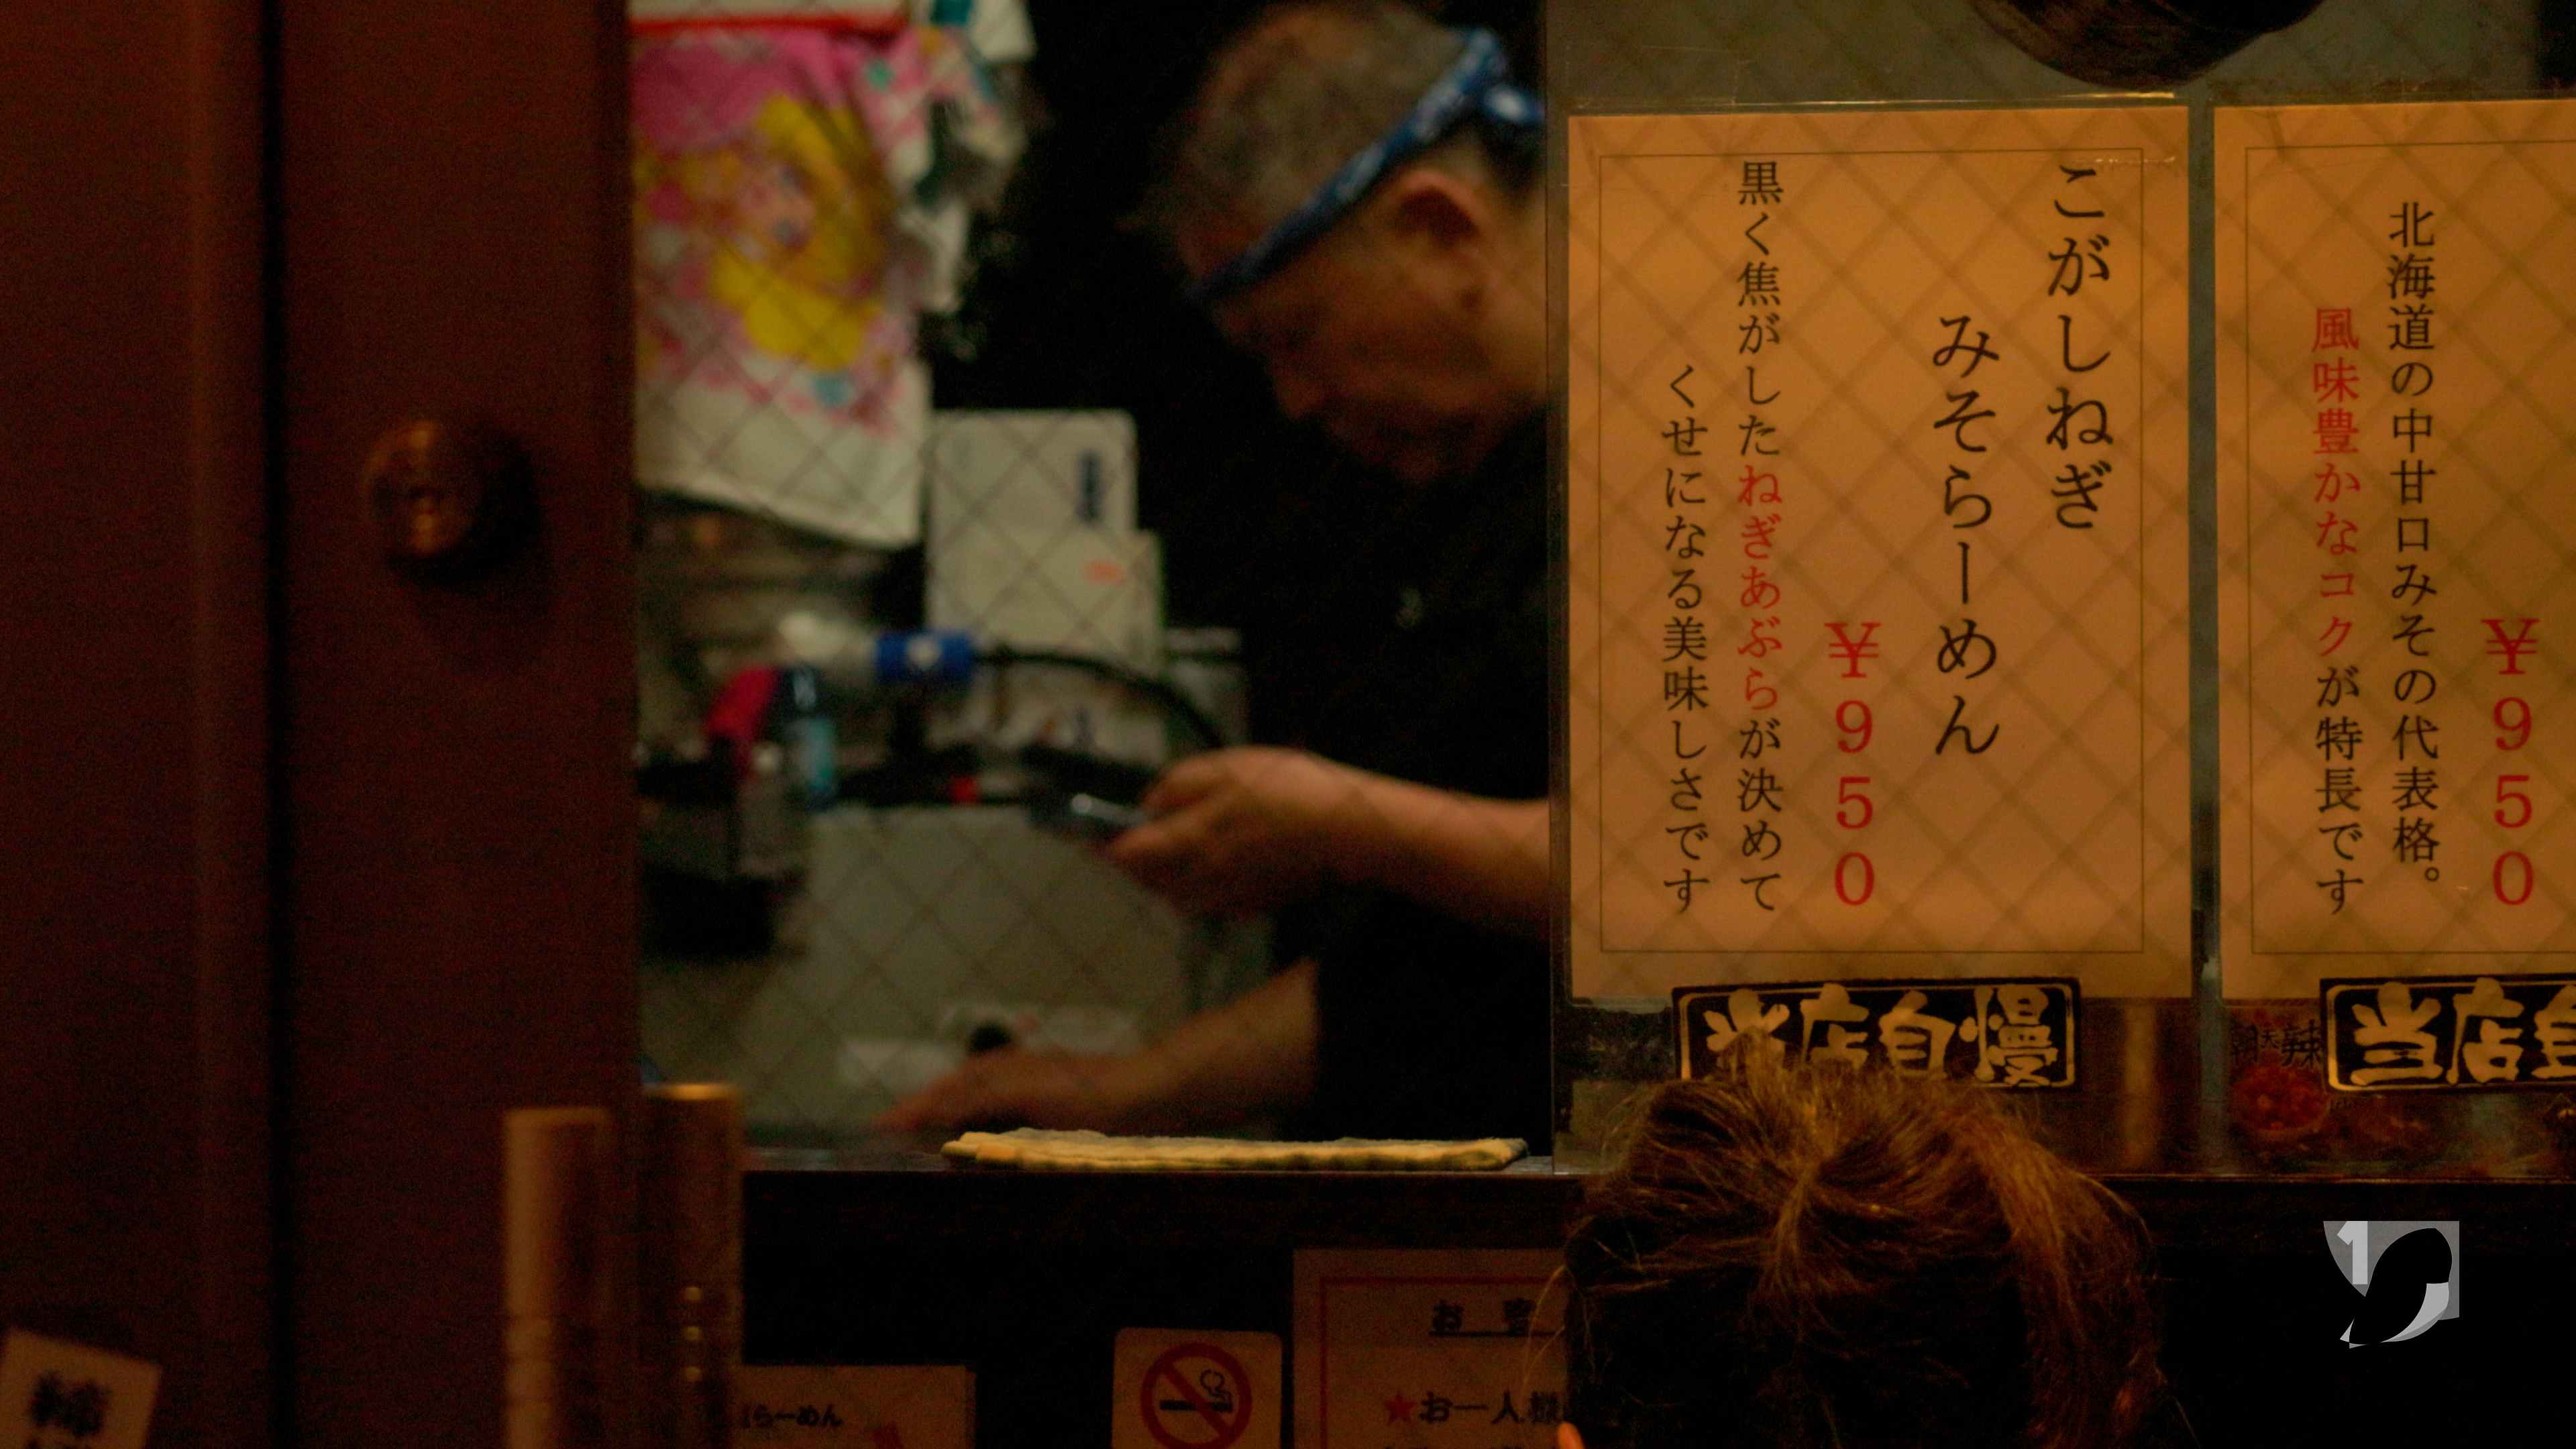 こがしねぎ
みそらーめん
¥950
黒く焦がしたねぎあぶらが決めて
くせになる美味しさです
当店自慢
¥950
北海道の中甘口みその代表格。
風味豊かなコクが特長です
当店自
辣
らーめん
お 客
★お一人様
1